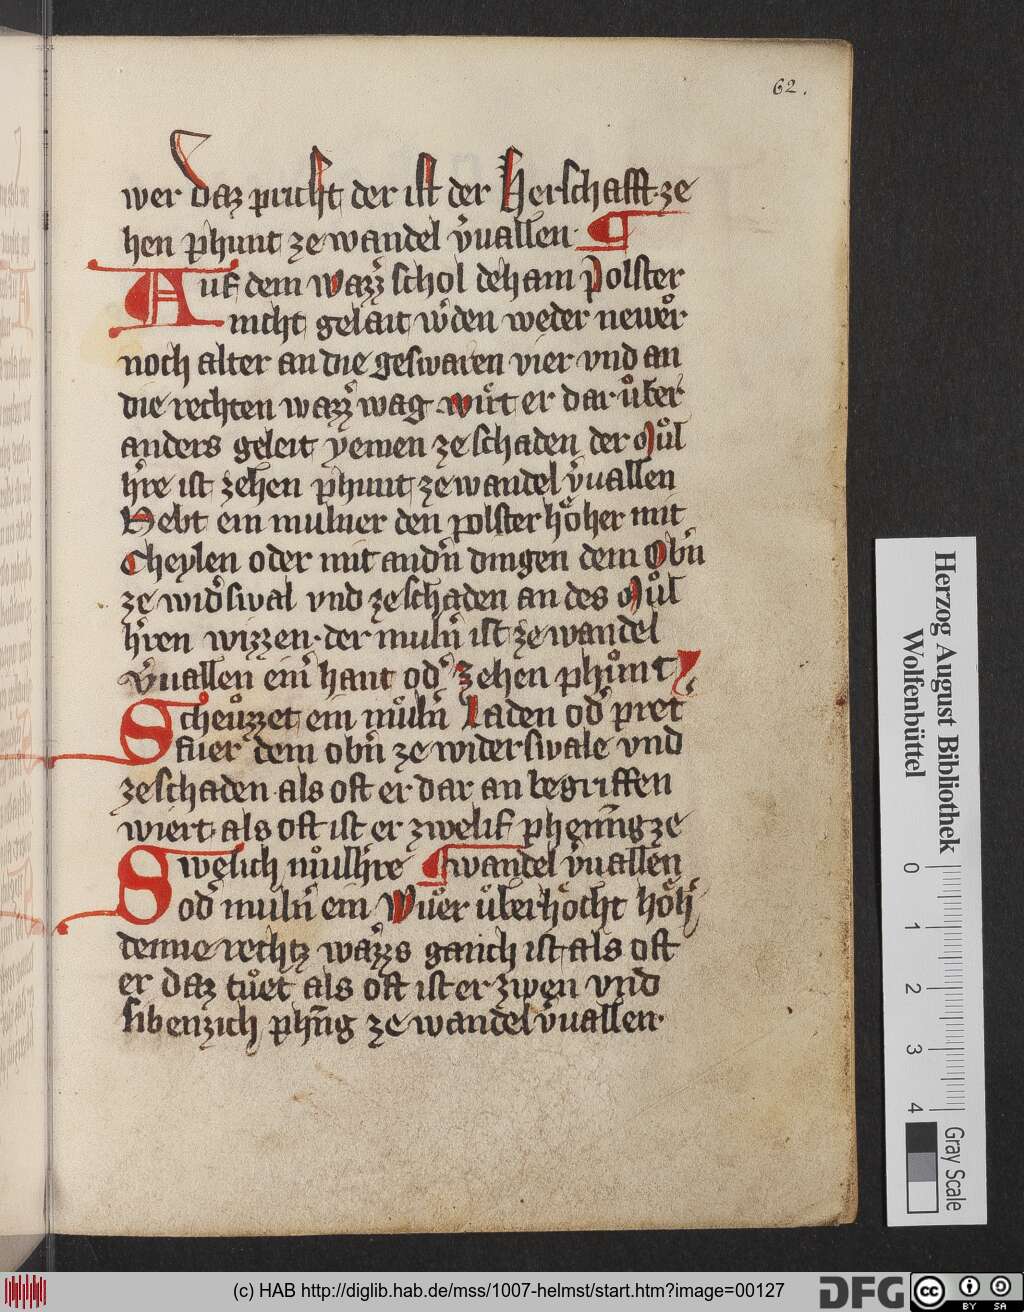 62.
wer daz pricht der ist der Herschafft ze
hen phunt ze wandel v̾uallen ¶
Auf dem wazz̾ schol dehain Polster
nicht gelait w̾den weder newͦer
noch alter an die geswaren vier vnd an
die rechten wazz̾ wag wͦirt er dar uͦber
anders geleit yemen ze schaden der Muͦl
h̾re ist zehen phunt ze wandel v̾uallen
Hebt ein mulner den polster hoͤher mit
Cheylen oder mit and̾n dingen dem Ob̾n
ze wid̾swal vnd ze schaden an des Muͦl
h̾ren wizzen · der muln̾ ist ze wandel
v̾uallen ein̾ hant od̾ zehen phuͦnt
Scheuͦzzet ein muͦln̾ Laden od̾ pret
fuer dem ob̾n ze widerswale vnd
ze schaden als oft er dar an begriffen
wiert als oft ist er zwelif phenīg ze
Swelich muͦlh̾re ¶ wandel v̾uallen
od̾ muln̾ ein Wuͦer uͤberhoͤcht hoͤh̾
denne rechtz wazz̾s ganch ist als oft
er daz tuͦet als oft ist er zwen vnd
sibenzich phn̄g ze wandel v̾uallen·
Herzog August Bibliothek
Wolfenbüttel
0 1 2 3 4
Gray Scale
(c) HAB http://diglib.hab.de/mss/1007-helmst/start.htm?image=00127
DFG
cc BY SA